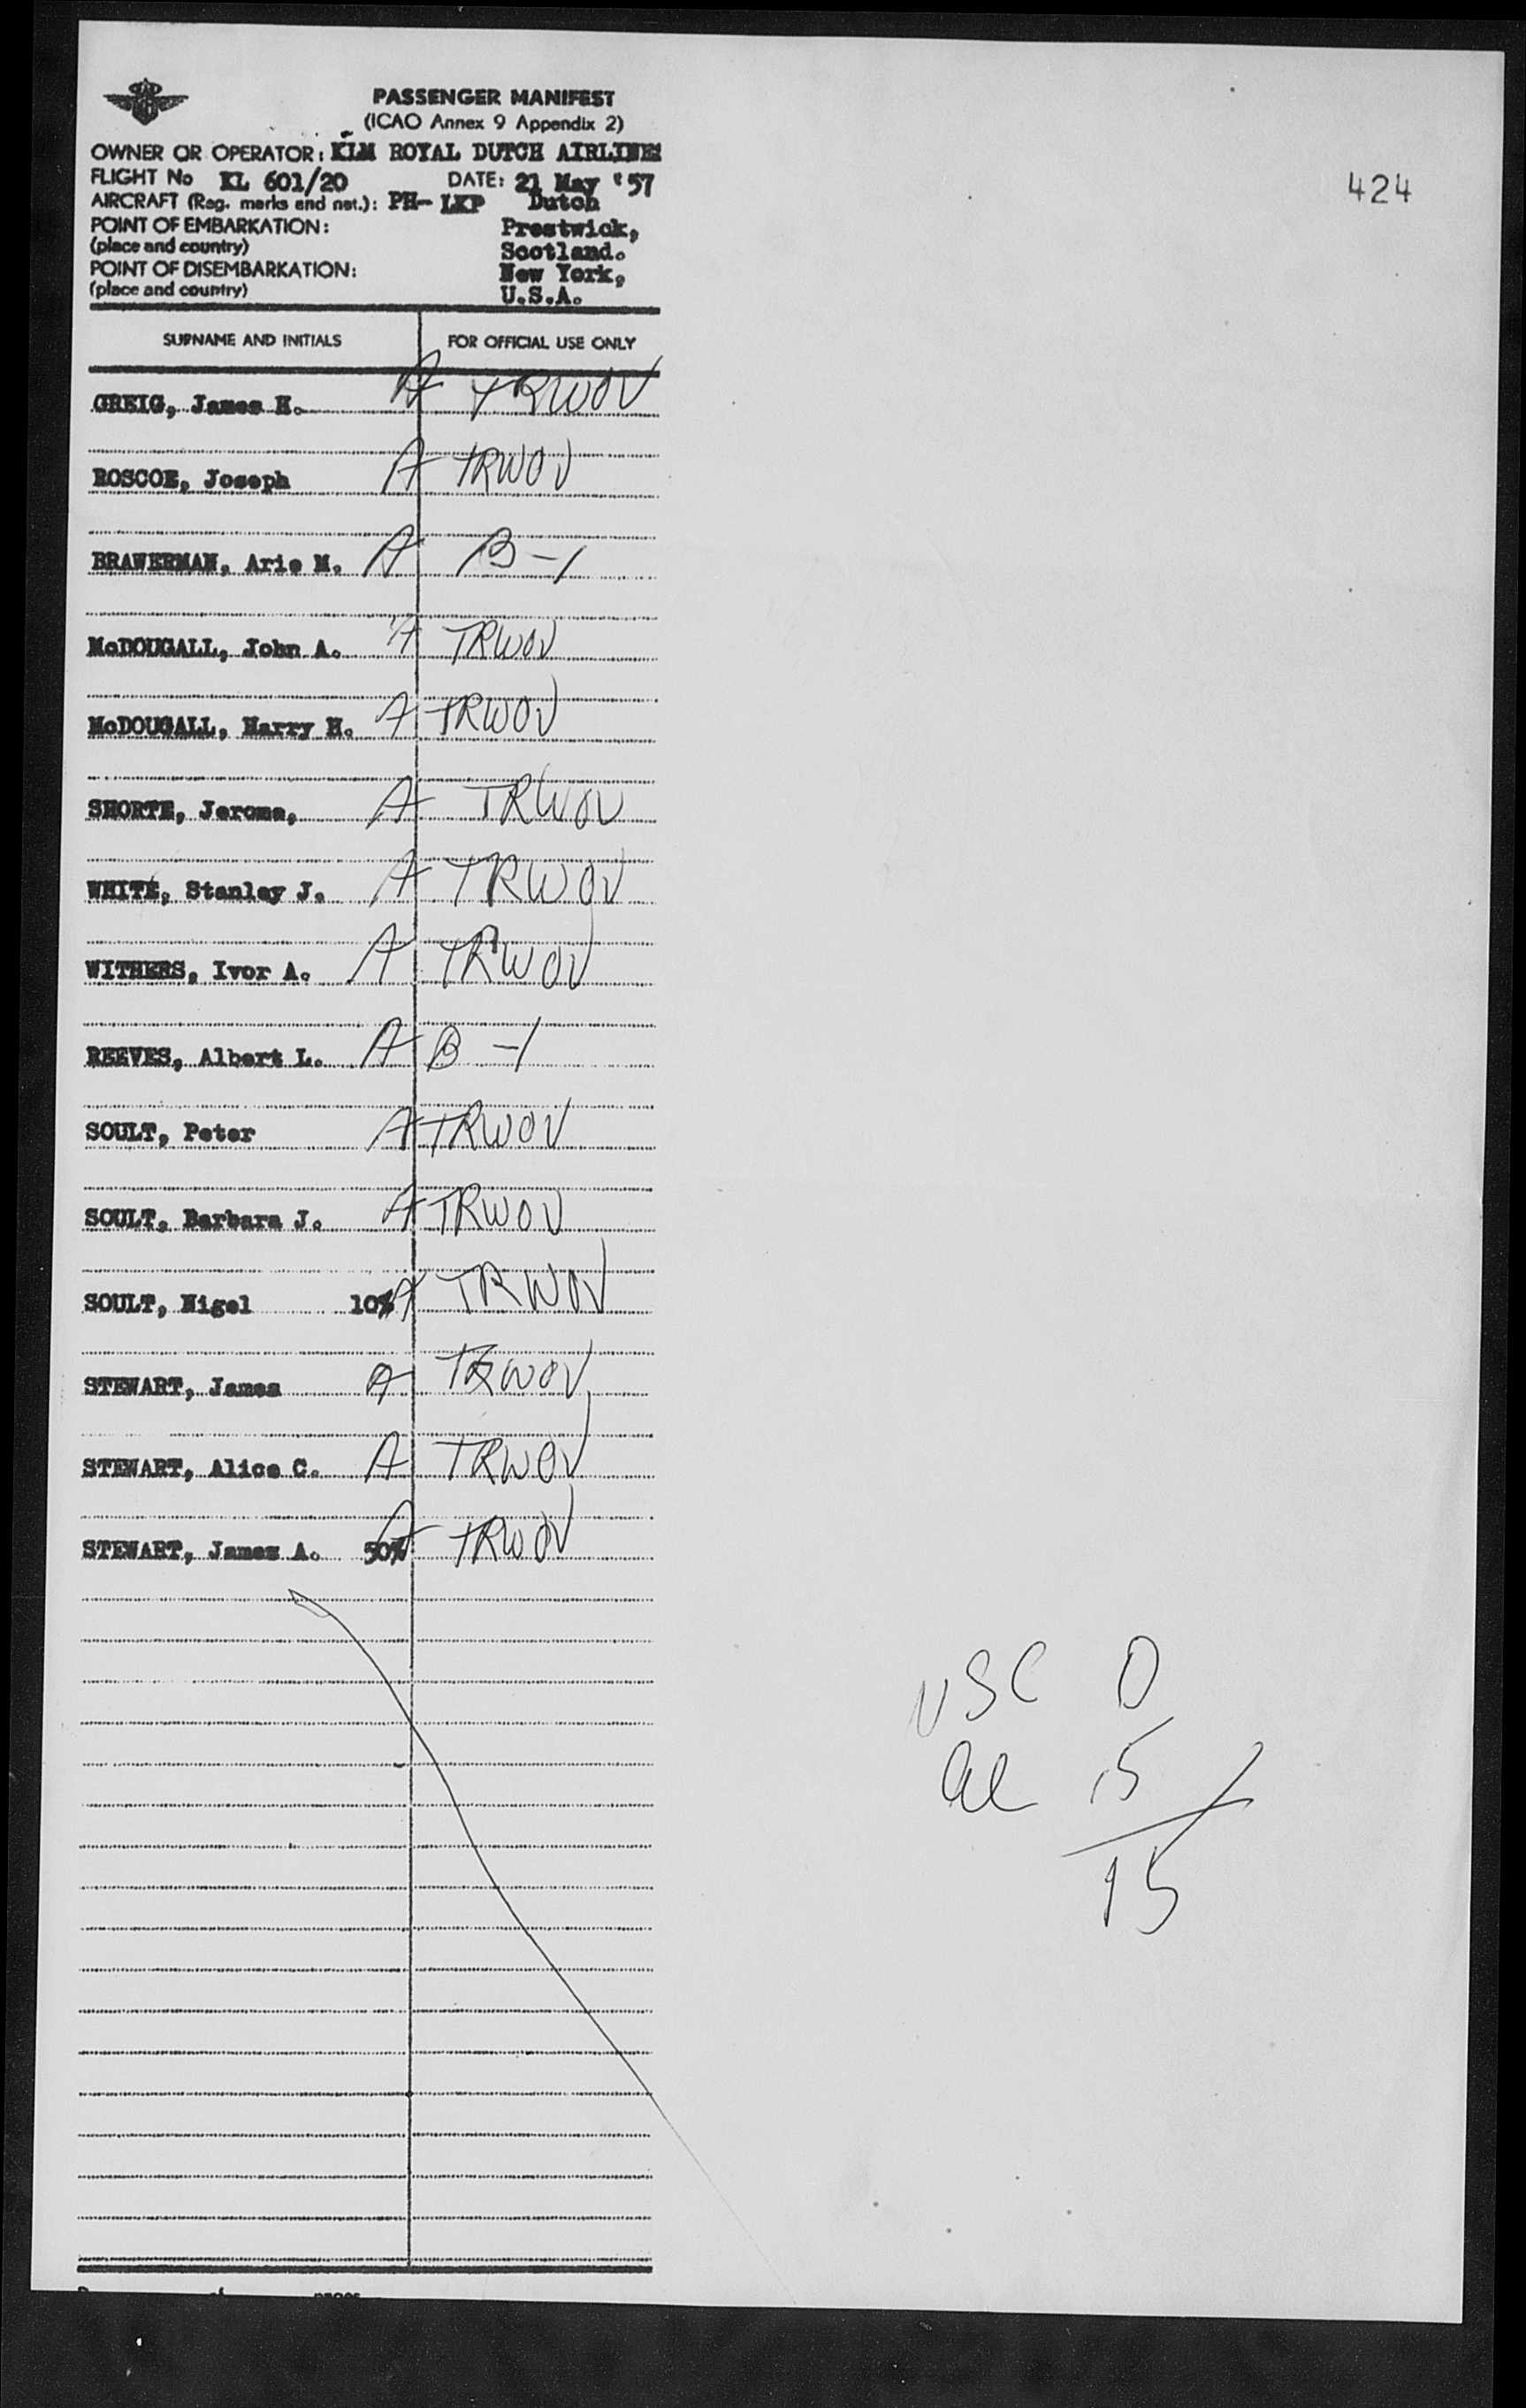 PASSENGER MANIFEST
(ICAO Annex 9 Appendix 2)
OWNER OR OPERATOR: KLM ROYAL DUTCH AIRLINES
FLIGHT No KL 601/20 DATE: 21 May '57
424
AIRCRAFT (Reg. marks and nat.): PH- LKP Dutch
POINT OF EMBARKATION: Prestwick,
(place and country) Scotland.
POINT OF DISEMBARKATION: New York,
(place and country) U.S.A.
SURNAME AND INITIALS FOR OFFICIAL USE ONLY
GREIG, James H. A TRWOV
ROSCOE, Joseph A TRWOV
BRAWERMAN, Arie M. A B-1
McDOUGALL, John A. A TRWOV
McDOUGALL, Harry H. A TRWOV
SHORTE, Jerome, A TRWOV
WHITE, Stanley J. A TRWOV
WITHERS, Ivor A. A TRWOV
REEVES, Albert L. A B-1
SOULT, Peter A TRWOV
SOULT, Barbara J. A TRWOV
SOULT, Nigel 10% A TRWOV
STEWART, James A TRWOV
STEWART, Alice C. A TRWOV
STEWART, James A. 50% A TRWOV
USC 0
al 15
15